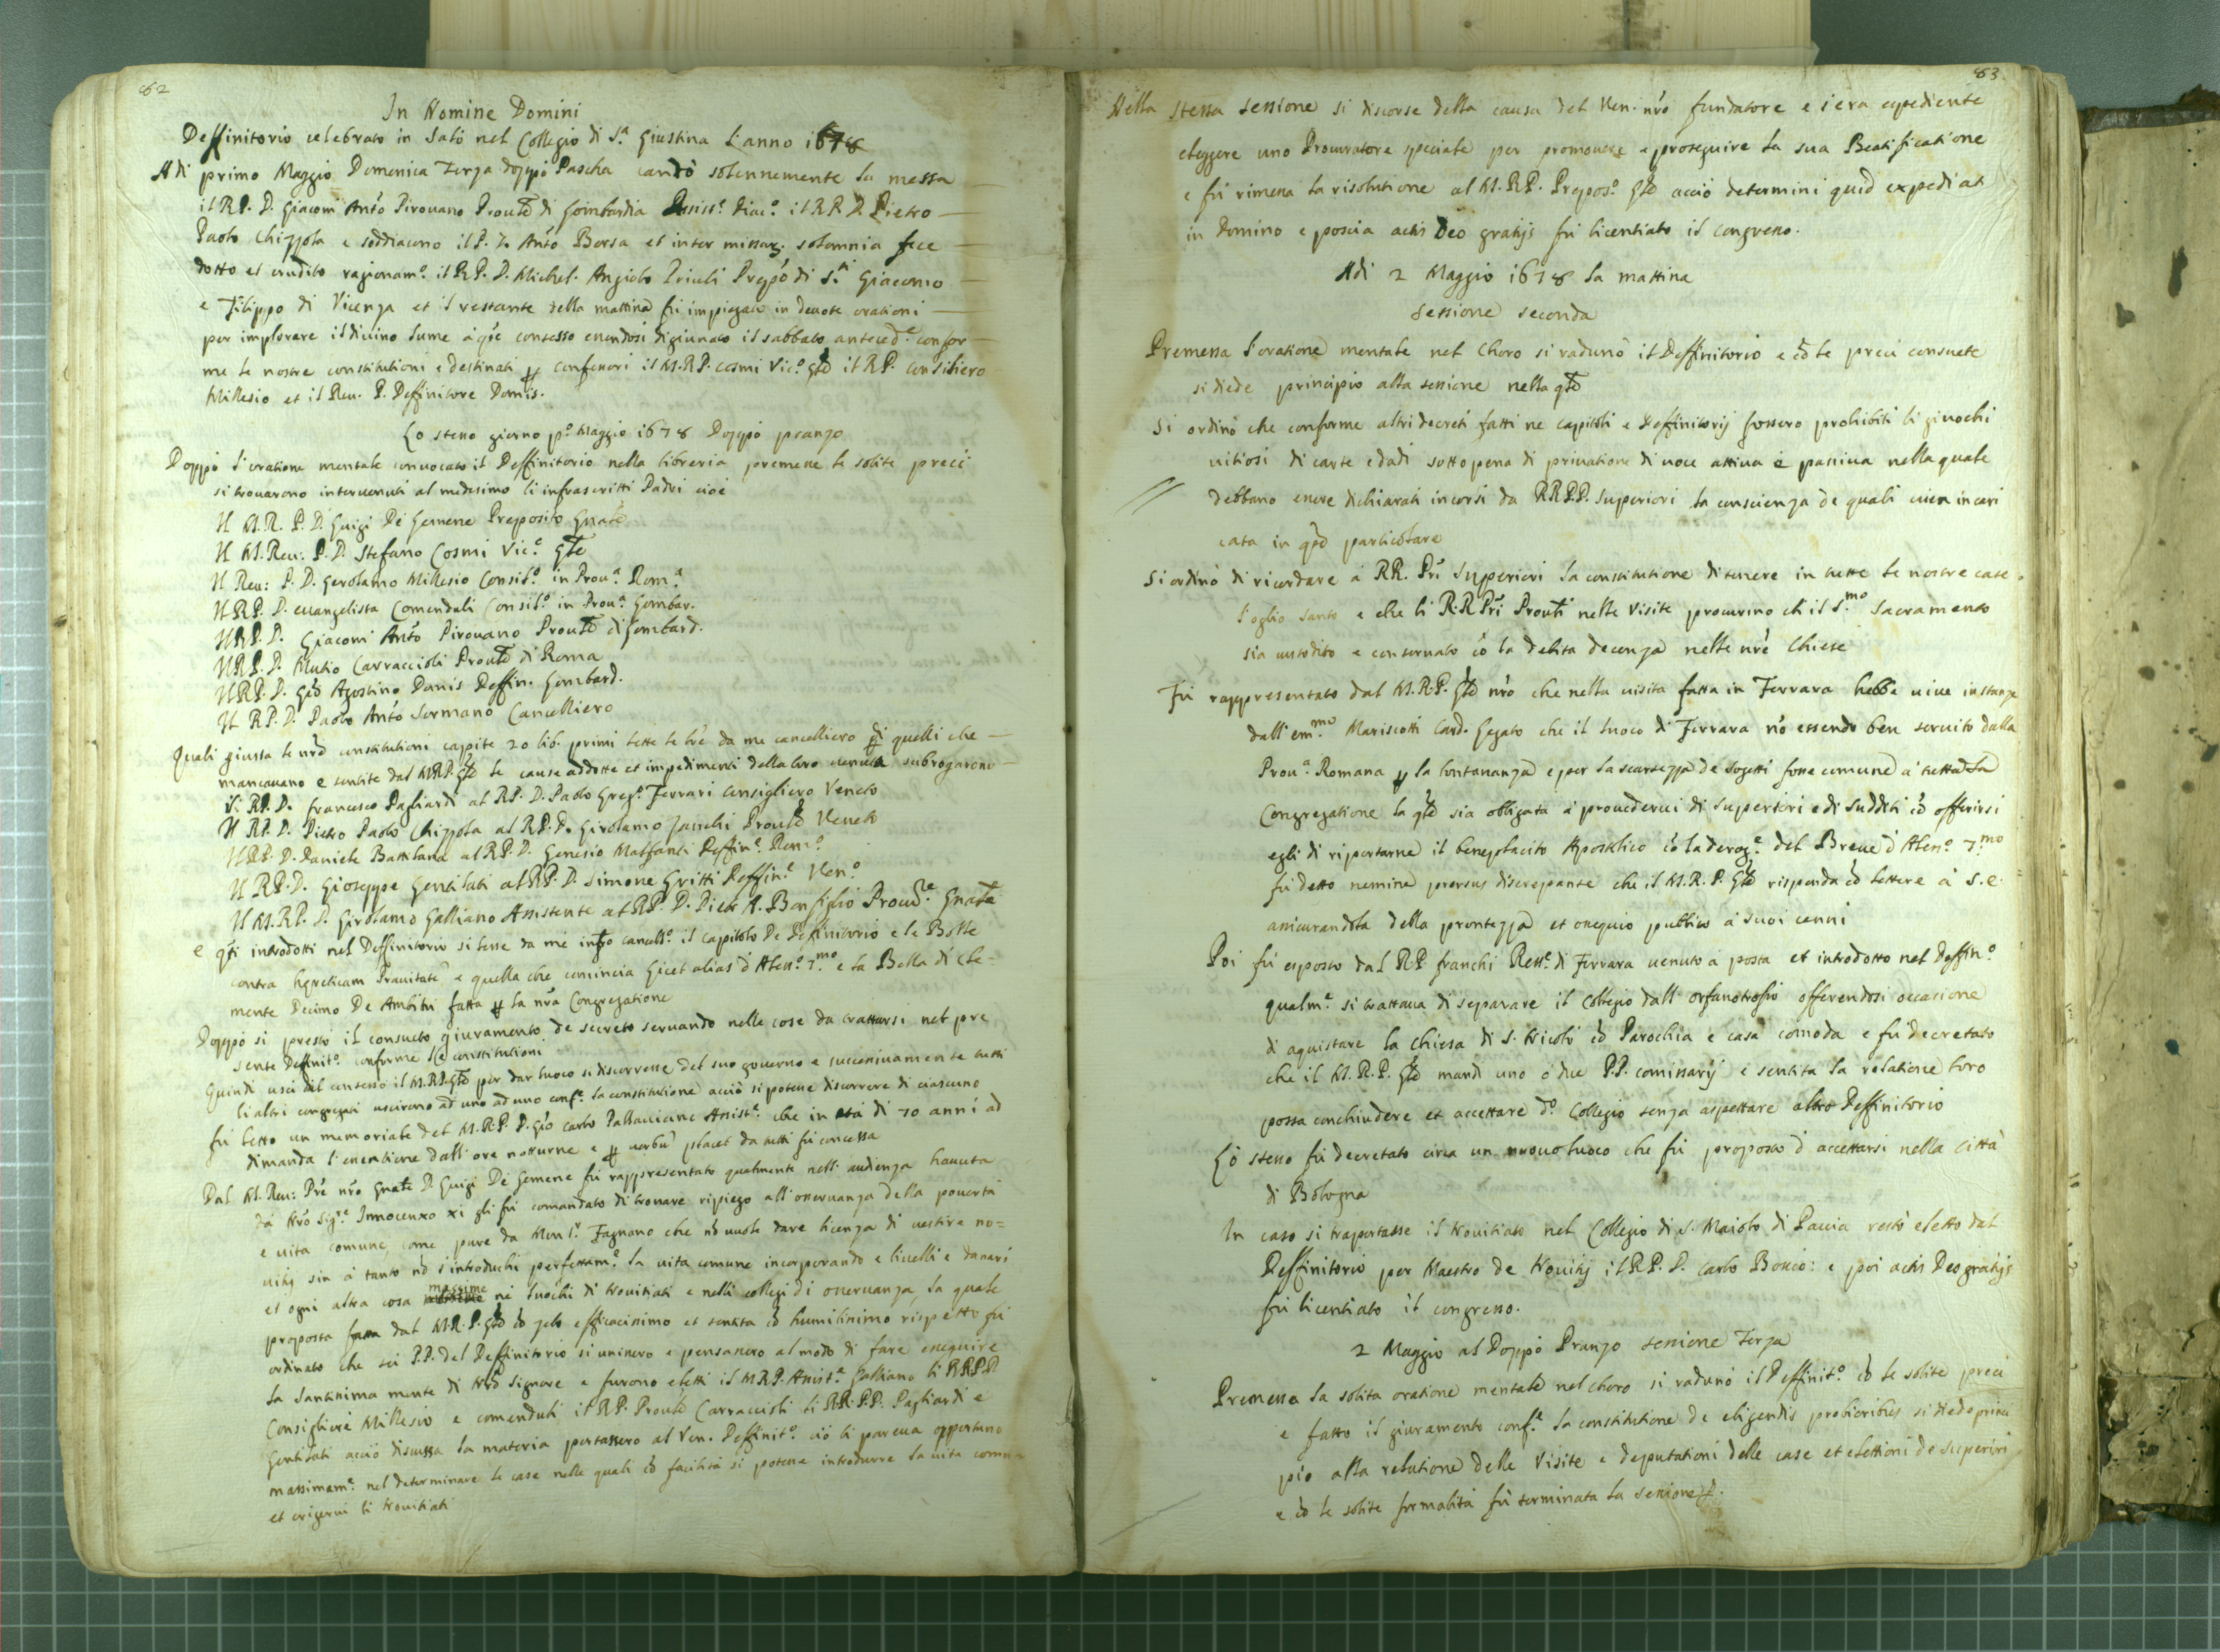 62
In Nomine Domini
Deffinitorio celebrato in Salò nel Collegio di S.ta Giustina l'anno 1678
Adi primo Maggio Domenica Terza doppò Pascha cantò solennemente la messa
il R.P. D. Giacom Ant'o Pirovano Prou'le di Lombardia Assist.e Diac.o il R.P. D. Pietro
Paolo Chizzola e soddiacono il P. D. Ant'o Borsa et inter missar. solemnia fece
dotto et erudito ragionam.o il R.P. D. Michel Angiolo Priuli Prepo'o di S.ti Giacomo
e Filippo di Vicenza et il restante della mattina fù impiegato in deuote orationi
per implorare il diuino lume à q'to consesso essendosi digiunato il sabbato anteced.e confor
me le nostre constitutioni e destinati p confessori il M.R.P. Cosmi Vic.o G'le il R.P. Consiliero
Millesio et il Reu. P. Deffinitore Domis.
Lo stesso giorno p.o Maggio 1678 Doppò pranzo
Doppò l'oratione mentale conuocato il Deffinitorio nella libreria premesse le solite preci
si trouarono interuenuti al medesimo li infrascritti Padri cioè
Il M.R. P. D. Luigi De Lemene Preposito G'nale
Il M. Reu: P. D. Stefano Cosmi Vic.o G'le
Il Reu: P. D. Gerolamo Millesio Consil.o in Prou.a Rom.a
Il R.P. D. euangelista Comenduli Consil.o in Prou.a Lombar.
Il R.P. D. Giacom Ant'o Pirouano Prou'le di Lombard.
Il R.P. D. Mutio Carraccioli Prou'le di Roma
Il R.P. D. Gio Agostino Domis Deffin. Lombard.
Il R.P. D. Paolo Ant'o Sormano Cancelliero
Quali giussa le n're constitutioni capite 20 lib. primi lette le l're da me cancelliero di quelli che
mancauano e sentite dal M.R.P. G'le le cause addotte et impedimenti della loro uenuta subrogarono
Il R.P. D. Francesco Pagliardi al R.P. D. Paolo Greg.o Ferrari Consigliero Veneto
Il R.P. D. Pietro Paolo Chizzola al R.P. D. Girolamo Zanchi Prou'le Veneto
Il R.P. D. Daniele Battilana al R.P. D. Genesio Malfanti Deffin.e Rom.o
Il R.P. D. Gioseppe Gentilati al R.P. D. Simone Gritti Deffin.e Ven.o
Il M.R.P. D. Girolamo Galliano Assistente al R.P. D. Pietr A. Bonfiglio Procu're G'nale
e q'ti introdotti nel Deffinitorio si lesse da me inf'o cancell.o il Capitolo De Definitorio e le Bolle
contra hæreticam Prauitate' e quella che comincia Licet alias d'Aless.o 7.mo e la Bolla di Cle=
mente Decimo De Ambitu fatta p la n'ra Congregatione
Doppò si prestò il consueto giuramento de secreto seruando nelle cose da trattarsi nel pre
sente Deffinit.o conforme le constitutioni
Quindi uscì dal consesso il M.R.P. G'le per dar luoco si discorresse del suo gouerno e successiuamente tutti
li altri congregati uscirono ad uno ad uno conf.e la constitutione acciò si potesse discorrere di ciascuno
fù letto un memoriale del M.R.P. D. Gio Carlo Pallauicino Assist.e che in età di 70 anni ad
dimanda l'esentione dall'ore notturne e p uerbu' placet da tutti fù concessa
Dal M. Reu: P're n'ro G'nale D. Luigi De Lemene fù rappresentato qualmente nell'audienza hauuta
dà N'ro Sig.re Innocenzo XI gli fù comandato di trouare ripiego all'osseruanza della pouertà
e uita comune, come pure da Mons.r Fagnano che nò uuole dare licenza di uestire no=
uitij sin à tanto nò s'introduchi perfettam.e la uita comune incorporando e liuelli e danari
et ogni altra cosa massime nè luochi di Nouitiati e nelli collegi di osseruanza, la quale
proposta fatta dal M.R.P. G'le cò zelo efficacissimo et sentita cò humilissimo rispetto fù
ordinato che sei P.P. del Deffinitorio si unissero e pensassero al modo di fare esseguire
la santissima mente di N'ro Signore e furono eletti il M.R.P. Assist.e Galliano li R.R.P.P.
Consiglieri Millesio e comenduli il R.P. Prou'le Carraccioli li R.R.P.P. Pagliardi e
Gentilati acciò discussa la materia portassero al Ven. Deffinit.o ciò li pareua opportuno
massimam.e nel determinare le case nelle quali cò facilità si potesse introdurre la uita comu=
et erigerui li Nouitiati
63
Nella stessa sessione si discorse della causa del Ven. n'ro fundatore e s'era espediente
eleggere uno Procuratore speciale per promouere e proseguire la sua Beatificatione
e fù rimessa la risolutione al M.R.P. Prepos.o G'le acciò determini quid expediat
in Domino e poscia actis Deo gratijs fù licentiato il congresso.
Adi 2 Maggio 1678 la mattina
sessione seconda
Premessa l'oratione mentale nel Choro si radunò il Deffinitorio e cò le preci consuete
si diede principio alla sessione nella q'le
Si ordinò che conforme altri decreti fatti ne capitoli e Deffinitorij fossero prohibiti li giuochi
uitiosi di carte e dadi sotto pena di priuatione di uoce attiua e passiua nella quale
debbano essere dichiarati incorsi da R.R.P.P. Superiori la conscienza de quali uien incari
cata in q'to particolare
Si ordinò di ricordare à RR. P'ri Superiori la constitutione di tenere in tutte le nostre case
l'oglio santo e che li R.R. P'ri Prou'li nelle Visite procurino ch il S.mo Sacramento
sia custodito e conseruato cò la debita decenza nelle n're Chiese
Fù rappresentato dal M.R.P. G'le n'ro che nella uisita fatta in Ferrara hebbe uiue instanze
dall'em.mo Mariscotti Card. Legato che il luoco di Ferrara nò essendo ben seruito dalla
Prou.a Romana p la lontananza e per la scarsezza de sogetti fosse comune à tutta la
Congregatione la q'le sia obligata à prouederui di Superiori e di Sudditi cò offerirsi
egli di riportarne il beneplacito Apostolico cò la derog.e del Breue d'Aless.o 7.mo
fù detto nemine prorsus discrepante che il M.R.P. G'le risponda cò lettere à S.E.
assicurandola della prontezza et ossequio publico à suoi cenni
Poi fù esposto dal R.P. Franchi Rett.e di Ferrara uenuto à posta et introdotto nel Deffin.o
qualm.e si trattaua di separare il Collegio dall'orfanotrofio offerendosi occasione
di aquistare la Chiesa di S. Nicolò cò Parochia e casa comoda e fù decretato
che il M.R.P. G'le mandi uno ò due P.P. comissarij e sentita la relatione loro
possa conchiudere et accettare d.o Collegio senza aspettare altro Deffinitorio
Lò stesso fù decretato circa un nuouo luoco che fù proposto d'accettarsi nella Città
di Bologna
In caso si trasportasse il Nouitiato nel Collegio di S. Maiolo di Pauia restò eletto dal
Deffinitorio per Maestro de Nouitij il R.P. D. Carlo Bossio: e poi actis Deo gratijs
fù licentiato il congresso.
2 Maggio al Doppò Pranzo sessione Terza
Premessa la solita oratione mentale nel choro si radunò il Deffinit.o cò le solite preci
e fatto il giuramento conf.e la constitutione de eligendis probioribus si diede princi
pio alla relatione delle Visite e deputationi delle case et elettioni de superiori
e cò le solite formalità fù terminata la sessione.